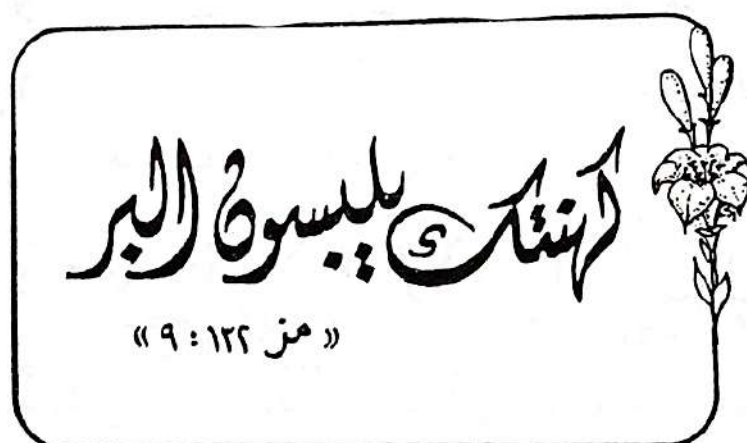 كهنتك يلبسون البر
« مز ١٢٢ : ٩ »